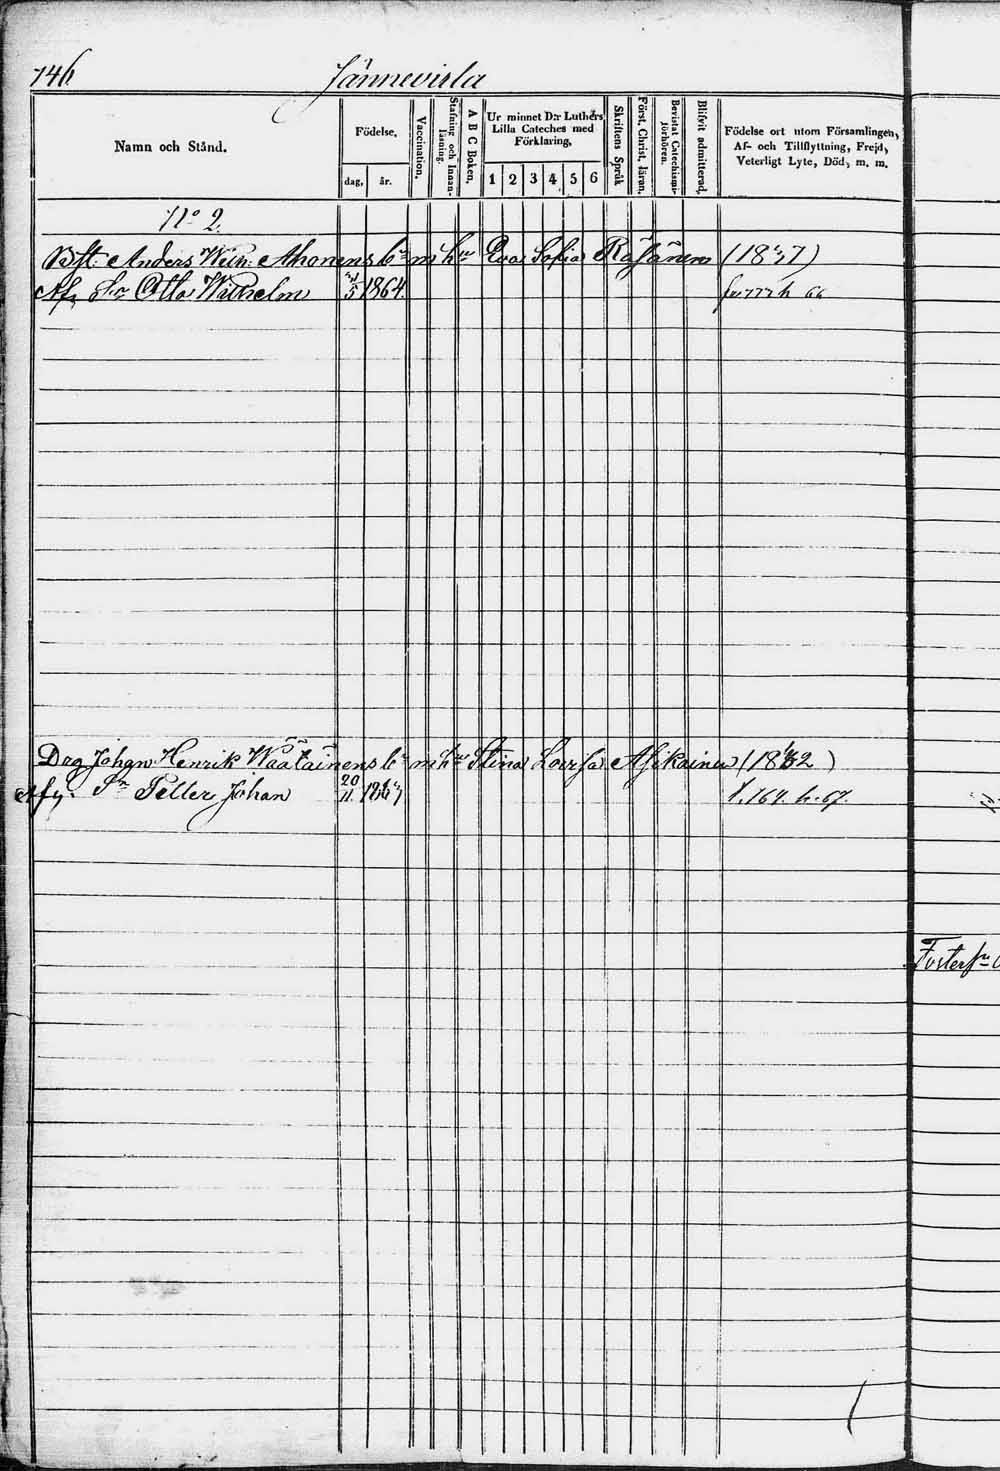 746
Jännevirta
Namn och Stånd.
Födelse,
dag, år.
Vaccination.
Stafning och Innanläsning.
A B C Boken,
Ur minnet D:r Luthers
Lilla Cateches med
Förklaring,
1 2 3 4 5 6
Skriftens Språk
Först. Christ. läran.
Bevistat Catechismi-
förhören.
Blifvit admitterad,
Födelse ort utom Församlingen,
Af- och Tillflyttning, Frejd,
Veterligt Lyte, Död, m. m.
No 2.
Bst. Anders Wilh. Ahonens b:n m h:u Eva Sofia Räsänen (1837)
Sn Otto Wilhelm 1864. 777 h 66
Drg Johan Henrik Wäätäinens b:n m h:u Stina Lovisa Asikainen (1832)
Sn Petter Johan 20/11 1863 164. h. 67.
Fosterfr